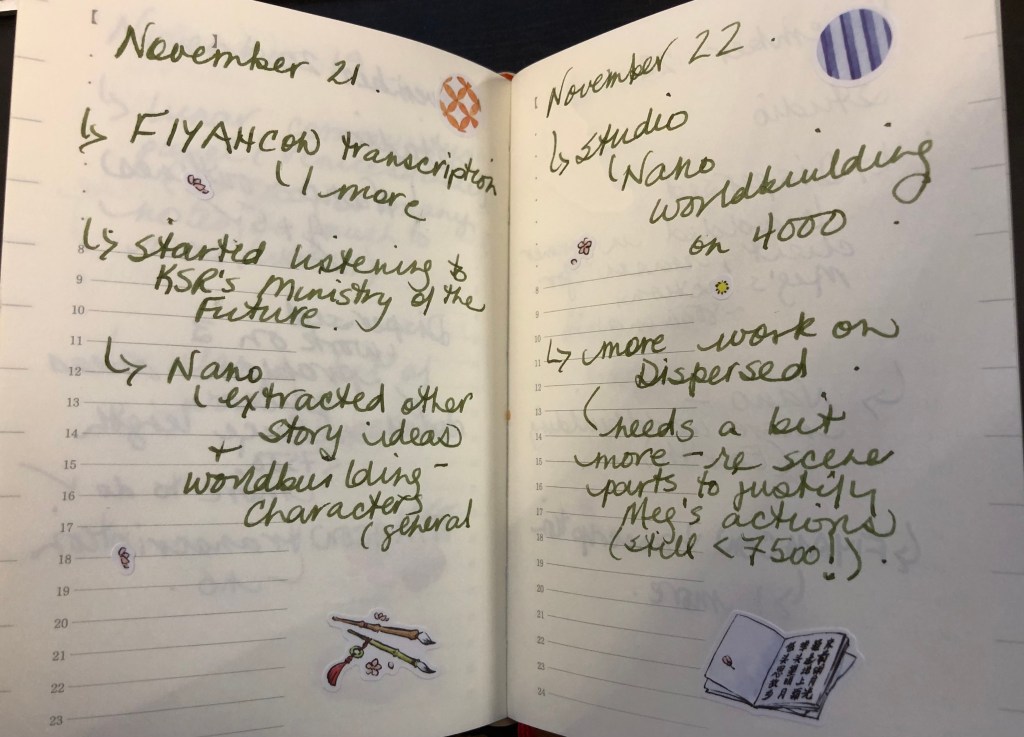 November 21.
↳ FIYAHCON transcription
1 more
↳ started listening to
KSR's Ministry of the
Future.
↳ Nano
extracted other
story ideas
+
worldbuilding -
characters
(general
8
9
10
11
12
13
14
15
16
17
18
19
20
21
22
23
November 22.
↳ studio
Nano
worldbuilding
on 4000.
↳ more work on
Dispersed.
(needs a bit
more - re scene
parts to justify
Meg's actions
(still < 7500!).
8
9
10
11
12
13
14
15
16
17
18
19
20
21
22
23
24